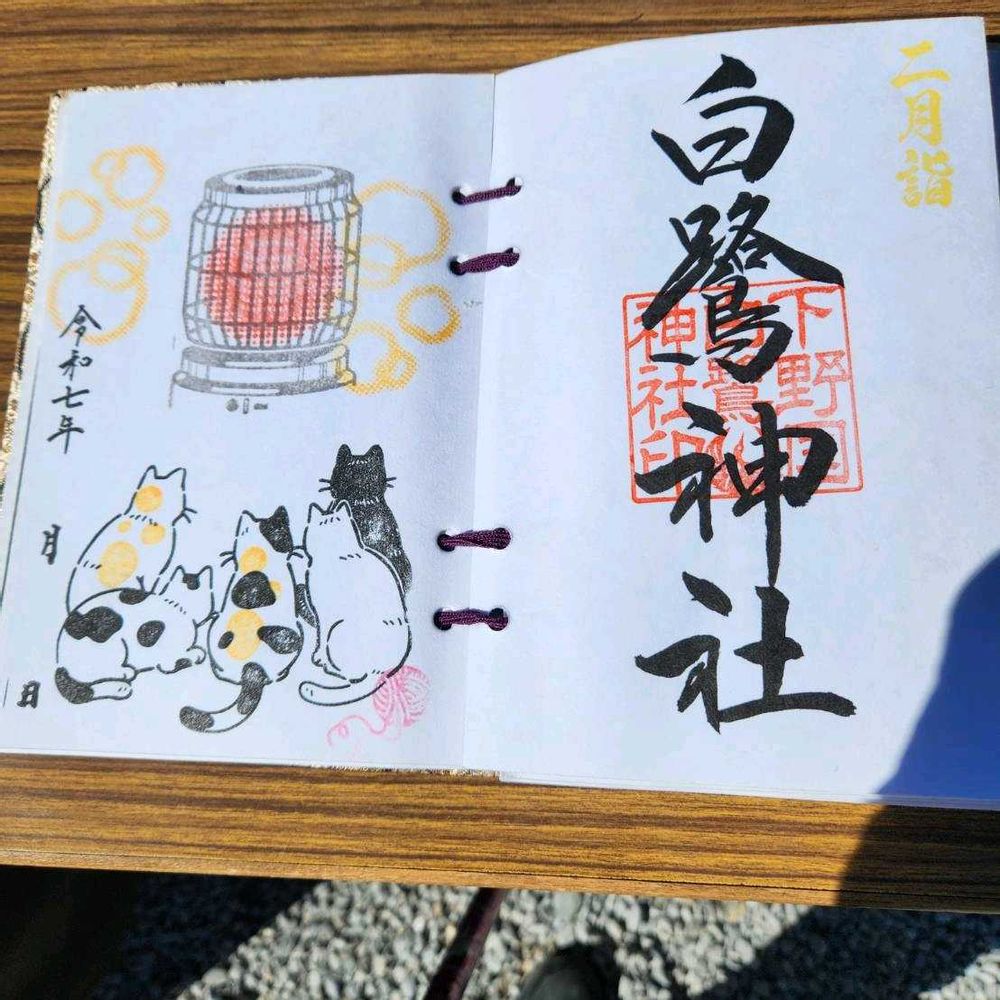 二月詣
白鷺神社
下野国
白鷺神社印
令和七年
月
日